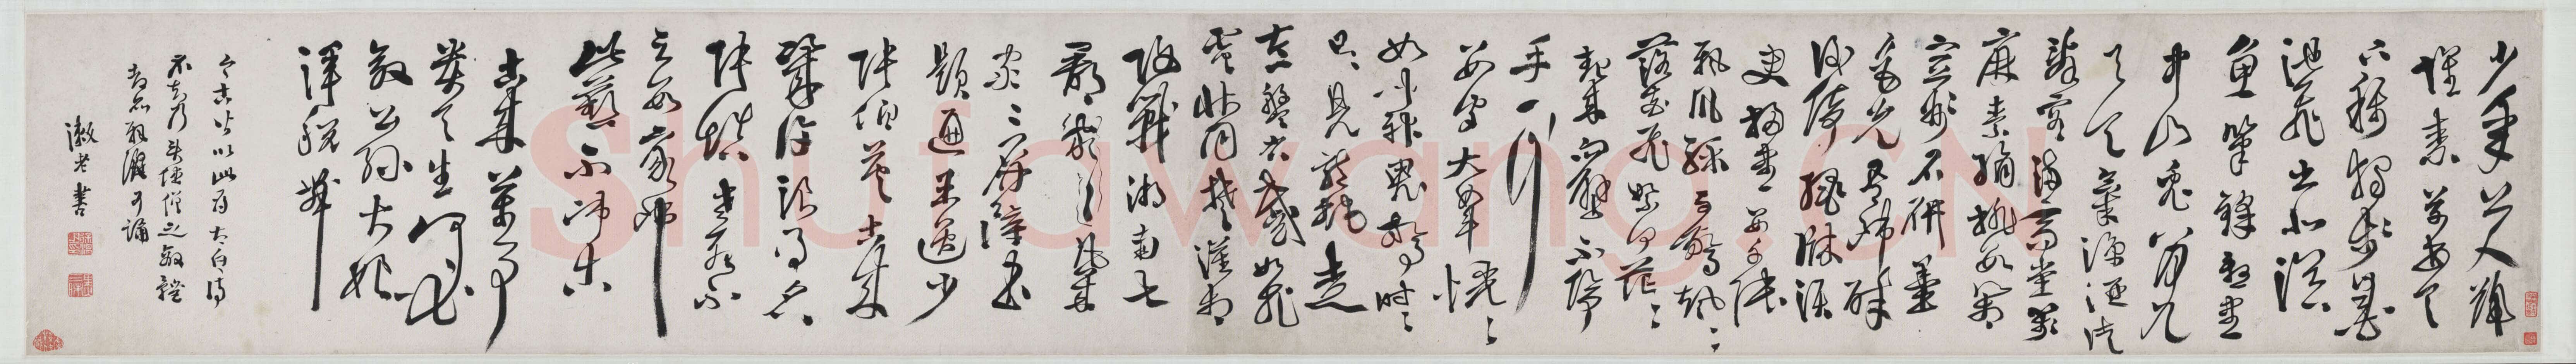 少年上人號
懷素草書天
下稱獨步墨
池飛出北溟
魚筆鋒殺盡
中山兔八月九
月天氣涼酒徒
詞客滿高堂箋
麻素絹排數箱
宣州石研墨
色光吾師醉
後倚繩床須
臾掃盡數千張
飄風驟雨驚颯颯
落花飛雪何茫茫
起來向壁不停
手一行
數字大如斗怳怳
如聞神鬼驚時時
只見龍蛇走
左盤右蹙如飛
電狀同楚漢相
攻戰湖南七
郡凡幾家
家家屏障書
題遍王逸少
張伯英古來
幾許浪得名
張顛老死不
足數我師
此藝不師古
古來萬事
貴天生何必
要公孫大娘
渾脫舞
今古皆以此為太白詩
不知乃僧之
可誦
漱老書
Shufawang.CN